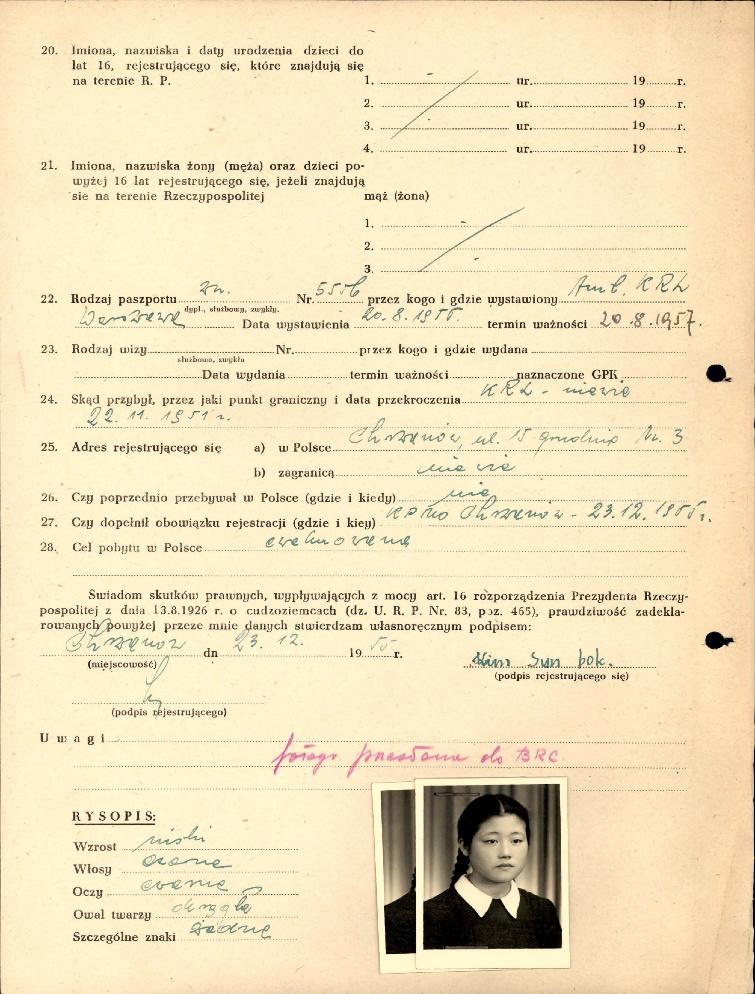 20. Imiona, nazwiska i daty urodzenia dzieci do
lat 16, rejestrującego się, które znajdują się
na terenie R. P.
1. ur. 19 r.
2. ur. 19 r.
3. ur. 19 r.
4. ur. 19 r.
21. Imiona, nazwiska żony (męża) oraz dzieci po-
wyżej 16 lat rejestrującego się, jeżeli znajdują
sie na terenie Rzeczypospolitej
mąż (żona)
1.
2.
3.
22. Rodzaj paszportu zw. Nr. 5556 przez kogo i gdzie wystawiony Amb. KRL
dypl., służbowy, zwykły.
Warszawa Data wystawienia 20.8.1955. termin ważności 20.8.1957.
23. Rodzaj wizy Nr. przez kogo i gdzie wydana
służbowa, zwykła
Data wydania termin ważności naznaczone GPK
24. Skąd przybył, przez jaki punkt graniczny i data przekroczenia KRL - nie wie
22. 11. 1951 r.
25. Adres rejestrującego się a) w Polsce Chrzanów, ul. 15 grudnia Nr. 3
b) zagranicą nie wie
26. Czy poprzednio przebywał w Polsce (gdzie i kiedy) nie
27. Czy dopełnił obowiązku rejestracji (gdzie i kiey) Chrzanów - 23.12.1955 r.
28. Cel pobytu w Polsce
Świadom skutków prawnych, wypływających z mocy art. 16 rozporządzenia Prezydenta Rzeczy-
pospolitej z dnia 13.8.1926 r. o cudzoziemcach (dz. U. R. P. Nr. 83, poz. 465), prawdziwość zadekla-
rowanych powyżej przeze mnie danych stwierdzam własnoręcznym podpisem:
Chrzanów dn 23. 12. 1955 r. Kim Sun bok.
(miejscowość) (podpis rejestrującego się)
(podpis rejestrującego)
Uwagi
przesłano do BRC
RYSOPIS:
Wzrost niski
Włosy czarne
Oczy czarne
Owal twarzy okrągła
Szczególne znaki żadne